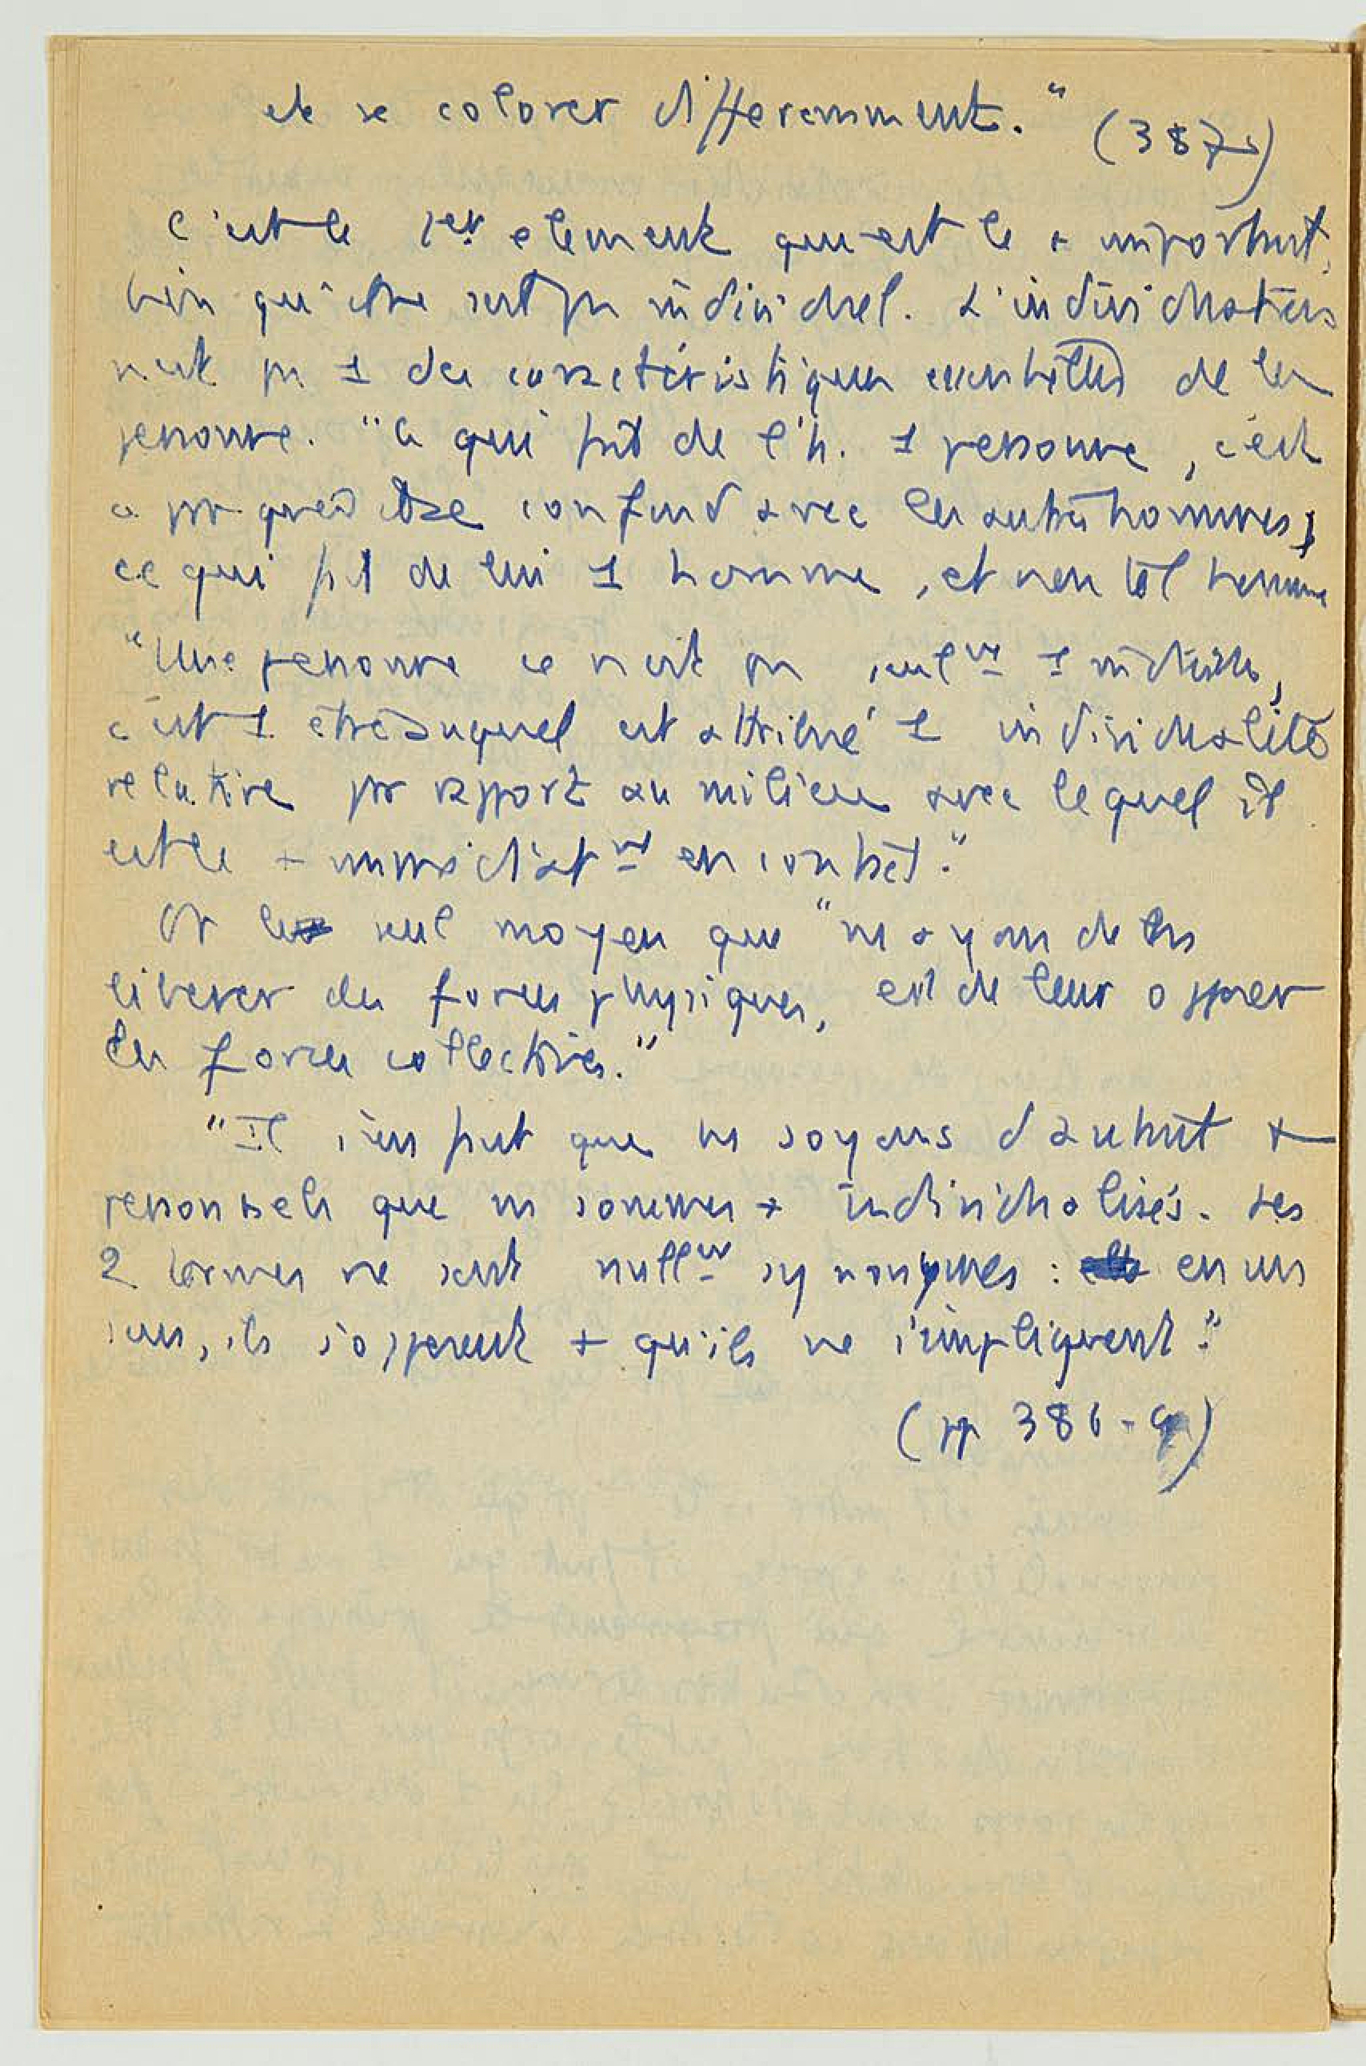 et se colorer différemment." (387)
C'est le 1er élément qui est le + important,
bien qu'étant pas individuel. L'individuation
n'est pas 1 des caractéristiques essentielles de la
personne. "Ce qui fait de l'h. 1 personne, c'est
ce par quoi il se confond avec les autres hommes,
ce qui fait de lui 1 homme, et non tel homme
"Une personne ce n'est pas seulmt 1 individu,
c'est 1 être auquel est attribué 1 individualité
relative par rapport au milieu avec lequel il
est le + immédiatmt en contact."
Or le seul moyen que "ns ayons de ns
libérer des forces physiques, est de leur opposer
les forces collectives."
"Il s'en faut que ns soyons d'autant +
personnels que ns sommes + individualisés. Les
2 termes ne sont nullmt synonymes : en un
sens, ils s'opposent + qu'ils ne s'impliquent."
(pp 386-9)